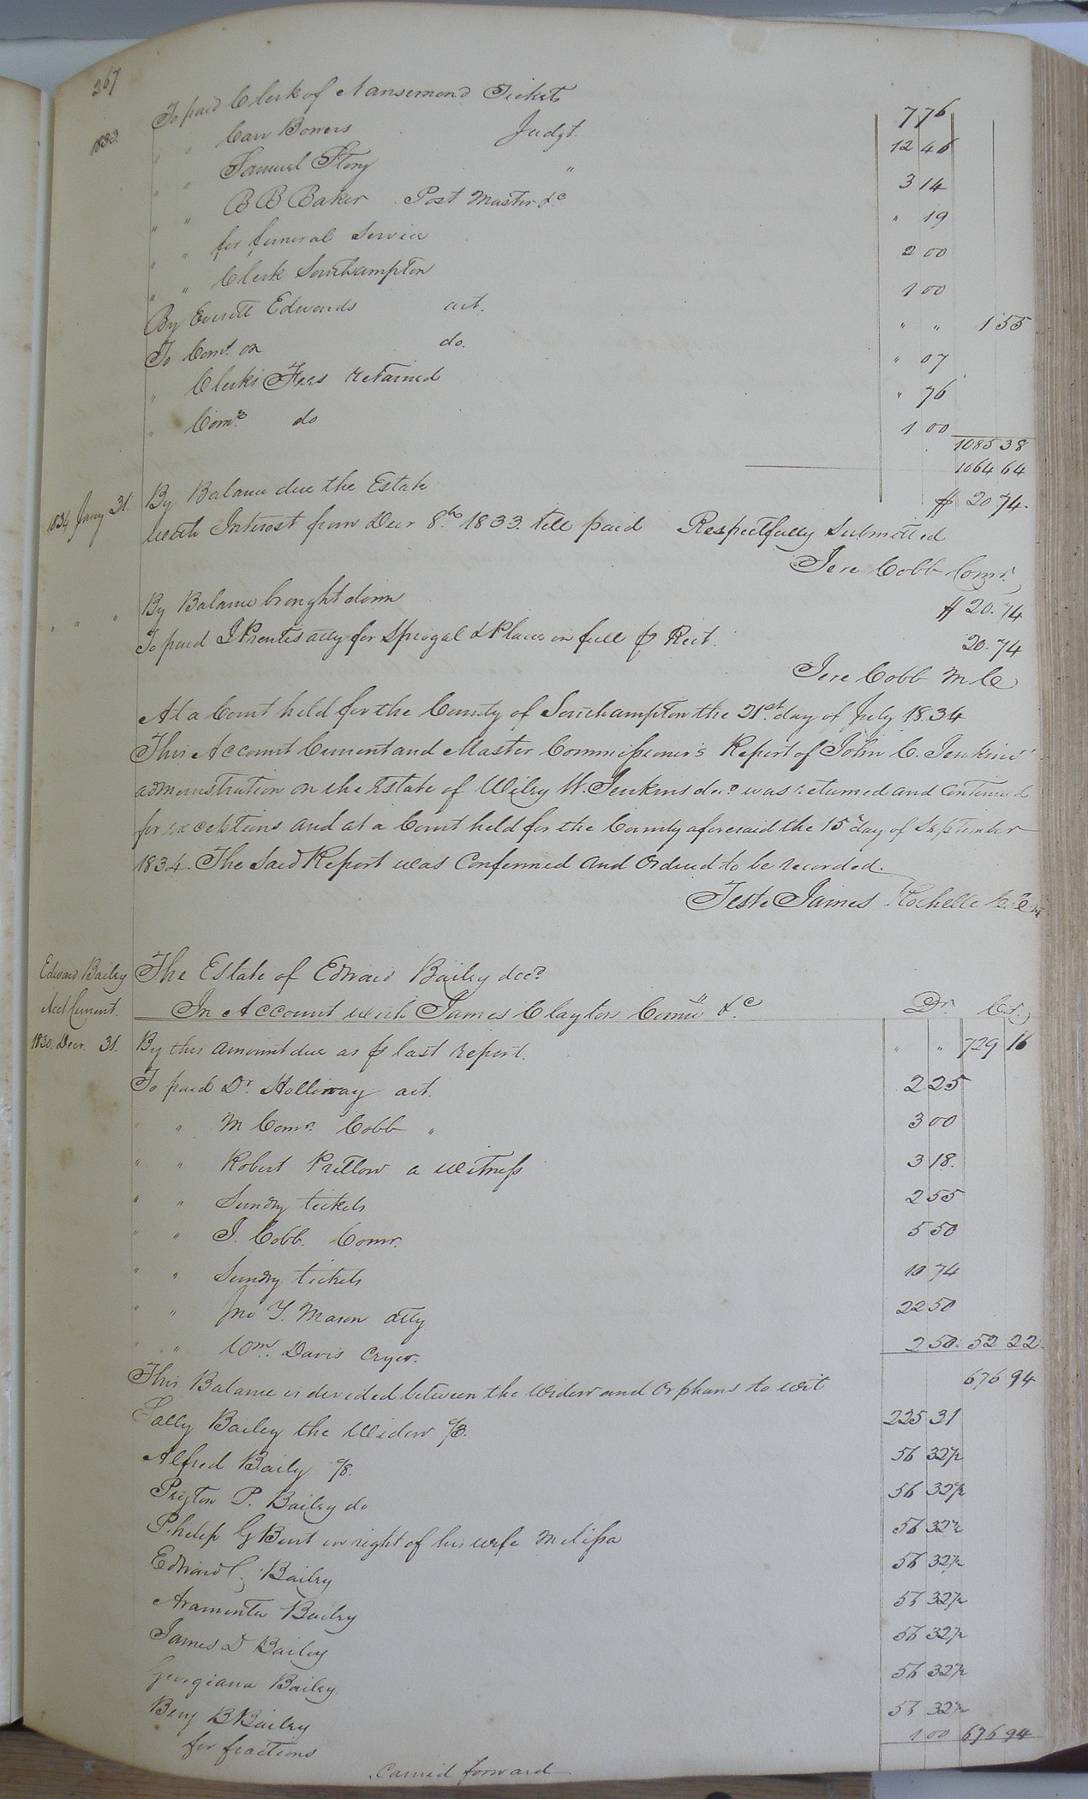 367
To paid Clerk of Nansemond Tickets 7 76
1833. " " Carr Bowers Judgt. 12 46
" " Samuel Story " 3 14
" " B B Baker Post Master &c " 19
" " for funeral Service 2 00
" " Clerk Southampton 1 00
By Everett Edwards act. " " 1 55
To Comn. on do. " 07
" Clerks Fees retained " 76
" Comrs do 1 00
1085 38
1064 64
1834 Jany 31. By Balance due the Estate $ 20 74.
with Interest from Decr 8th 1833 till paid Respectfully Submitted
Jere Cobb Comr.
" " " By Balance brought down $ 20.74
To paid J Prentis atty for Spriogal & Place in full pr Rect. 20.74
Jere Cobb M C
At a Court held for the County of Southampton the 21st day of July 1834
This Account Current and Master Commissioner's Report of John C. Jenkins'
administration on the Estate of Wiley W. Jenkins decd was returned and Continued
for exceptions and at a Court held for the County aforesaid the 15th day of September
1834. The Said Report was Confirmed and Ordered to be recorded.
Teste James Rochelle
Edward Bailey The Estate of Edward Bailey decd
Acct Current. In Account with James Clayton Comr &c Dr. Cr.
1830. Decr. 31. By this amount due as pr last report. " " 729 16
To paid Dr. Holloway act. 2 25
" " M Comr. Cobb " 3 00
" " Robert Pretlow a witness 3 18.
" " Sundry tickets 2 55
" " J. Cobb. Comr. 5 50
" " Sundry tickets 10 74
" " Jno Y. Mason atty 22 50
" " Wm. Davis Cryer. 2 50. 52 22.
This Balance is devided between the widow and Orphans to wit 676 94
Sally Bailey the Widow 1/3. 225 31
Alfred Baily 1/8. 56 32½
Peyton P. Bailey do 56 32½
Philip G Bent in right of his wife Melissa 56 32½
Edward C. Bailey 56 32½
Araminta Bailey 56 32½
James D Bailey 56 32½
Georgiana Bailey 56 32½
Benj B Bailey 56 32½
for fractions 1 00 676 94
Carried forward